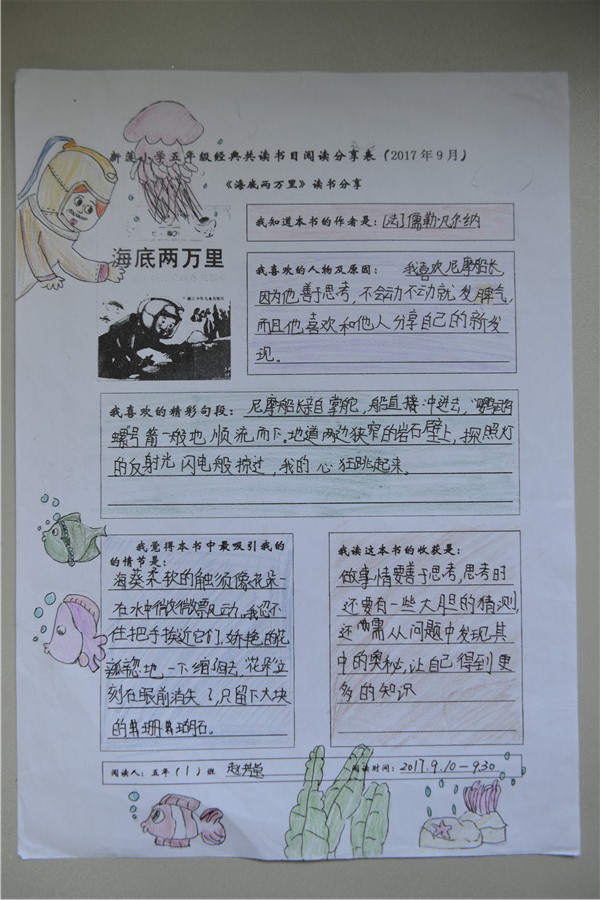 新莲小学五年级经典共读书目阅读分享表（2017年9月）
《海底两万里》读书分享
海底两万里
我知道本书的作者是：[法]儒勒·凡尔纳
我喜欢的人物及原因：我喜欢尼摩船长，
因为他善于思考，不会动不动就发脾气，
而且他喜欢和他人分享自己的新发
现。
我喜欢的精彩句段：尼摩船长亲自掌舵，船直接冲进去，“鹦鹉
螺号”箭一般也顺流而下。地道两边狭窄的岩石壁上，探照灯
的反射光闪电般掠过，我的心狂跳起来。
我觉得本书中最吸引我的
的情节是：
海葵柔软的触须像花朵一
在水中微微飘动，我忍不
住把手挨近它们，娇艳的花
瓣忽地一下缩回去，花朵立
刻在眼前消失了，只留下大块
的珊瑚石。
我读这本书的收获是：
做事情要善于思考，思考时
还要有一些大胆的猜测，
还需从问题中发现其
中的奥秘，让自己得到更
多的知识
阅读人：五年（1）班
阅读时间：2017.9.10-9.30